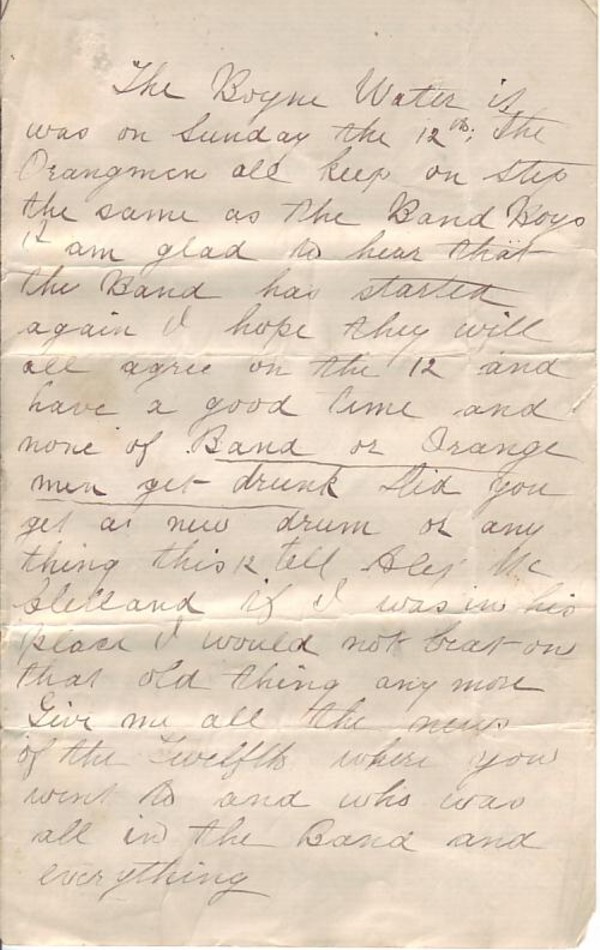 The Boyne Water it
was on Sunday the 12th; The
Orangmen all keep on step
the same as the Band Boys
I am glad to hear that
the Band has started
again I hope they will
all agree on the 12 and
have a good time and
none of Band or Orange
men get drunk Did you
get a new drum or any
thing this 12 tell Alex Mc
Clelland if I was in his
place I would not beat on
that old thing any more
Give me all the news
of the Twelfth where you
went to and who was
all in the Band and
everything